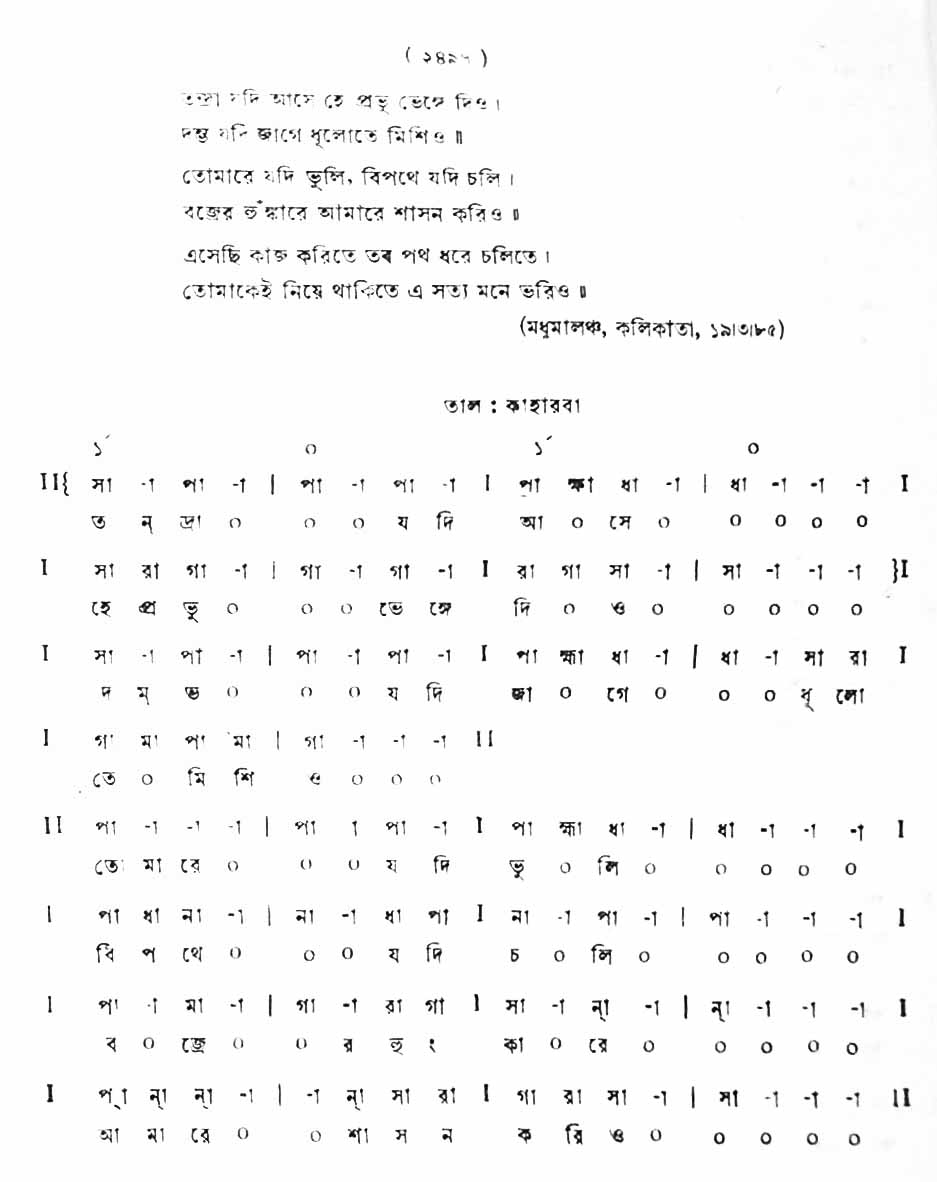 তন্দ্রা যদি আসে হে প্রভু ভেঙ্গে দিও।
দম্ভ যদি জাগে ধূলোতে মিশিও॥
তোমারে যদি ভুলি, বিপথে যদি চলি।
বজ্রের হুঁঙ্কারে আমারে শাসন করিও॥
এসেছি কাজ করিতে তব পথ ধরে চলিতে।
তোমাকেই নিয়ে থাকিতে এ সত্য মনে ভরিও॥
(মধুমালঞ্চ, কলিকাতা, ১৯।৩।৮৫)
তাল : কাহারবা
১´ ০ ১´ ০
II{ সা -া পা -া | পা -া পা -া I পা হ্মা ধা -া | ধা -া -া -া I
ত ন্ দ্রা ০ ০ ০ য দি আ ০ সে ০ ০ ০ ০ ০
I সা রা গা -া | গা -া গা -া I রা গা সা -া | সা -া -া -া }I
হে প্র ভু ০ ০ ০ ভে ঙ্গে দি ০ ও ০ ০ ০ ০ ০
I সা -া পা -া | পা -া পা -া I পা হ্মা ধা -া | ধা -া সা রা I
দ ম্ ভ ০ ০ ০ য দি জা ০ গে ০ ০ ০ ধূ লো
I গা মা পা মা | গা -া -া -া II
তে ০ মি শি ও ০ ০ ০
II পা -া -া -া | পা া পা -া I পা হ্মা ধা -া | ধা -া -া -া I
তো মা রে ০ ০ ০ য দি ভু ০ লি ০ ০ ০ ০ ০
I পা ধা না -া | না -া ধা পা I না -া পা -া | পা -া -া -া I
বি প থে ০ ০ ০ য দি চ ০ লি ০ ০ ০ ০ ০
I পা -া মা -া | গা -া রা গা I সা -া ন্া -া | ন্া -া -া -া I
ব ০ জ্রে ০ ০ র হু ং কা ০ রে ০ ০ ০ ০ ০
I প্া ন্া ন্া -া | -া ন্া সা রা I গা রা সা -া | সা -া -া -া II
আ মা রে ০ ০ শা স ন ক রি ও ০ ০ ০ ০ ০